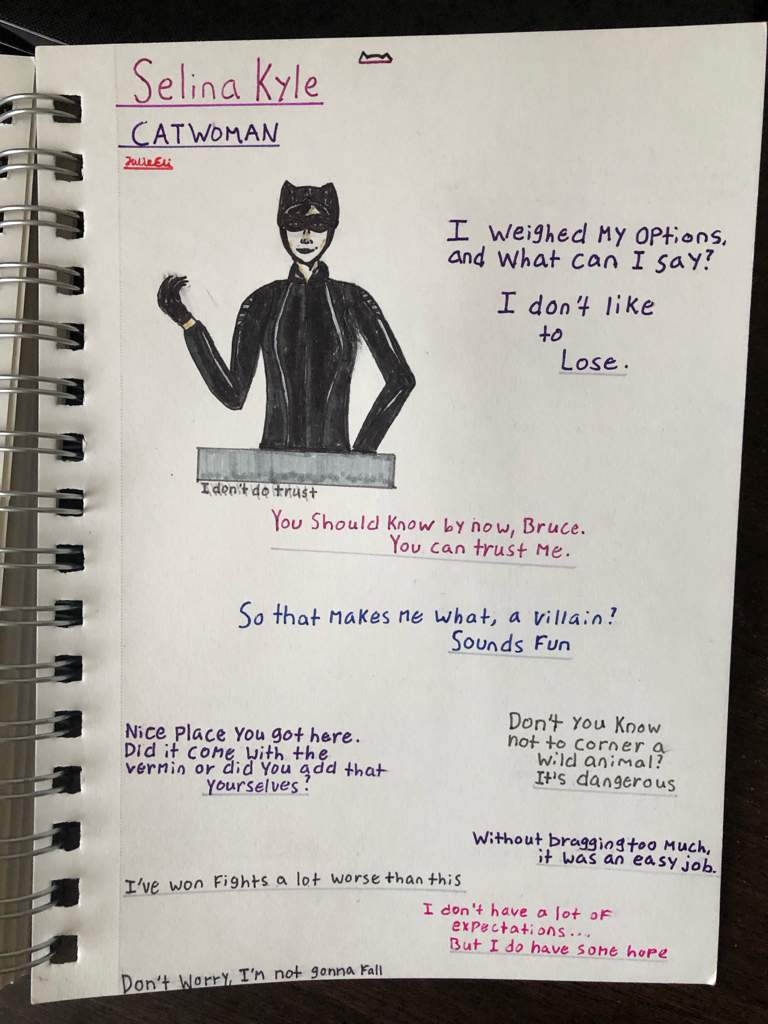 Selina Kyle
CATWOMAN
JulieEli
I weighed my options,
and what can I say?
I don't like
to
Lose.
I don't do trust
You should know by now, Bruce.
You can trust me.
So that makes me what, a villain?
Sounds Fun
Nice place you got here.
Did it come with the
vermin or did you add that
yourselves?
Don't you know
not to corner a
wild animal?
It's dangerous
Without bragging too much,
it was an easy job.
I've won fights a lot worse than this
I don't have a lot of
expectations...
But I do have some hope
Don't worry, I'm not gonna fall